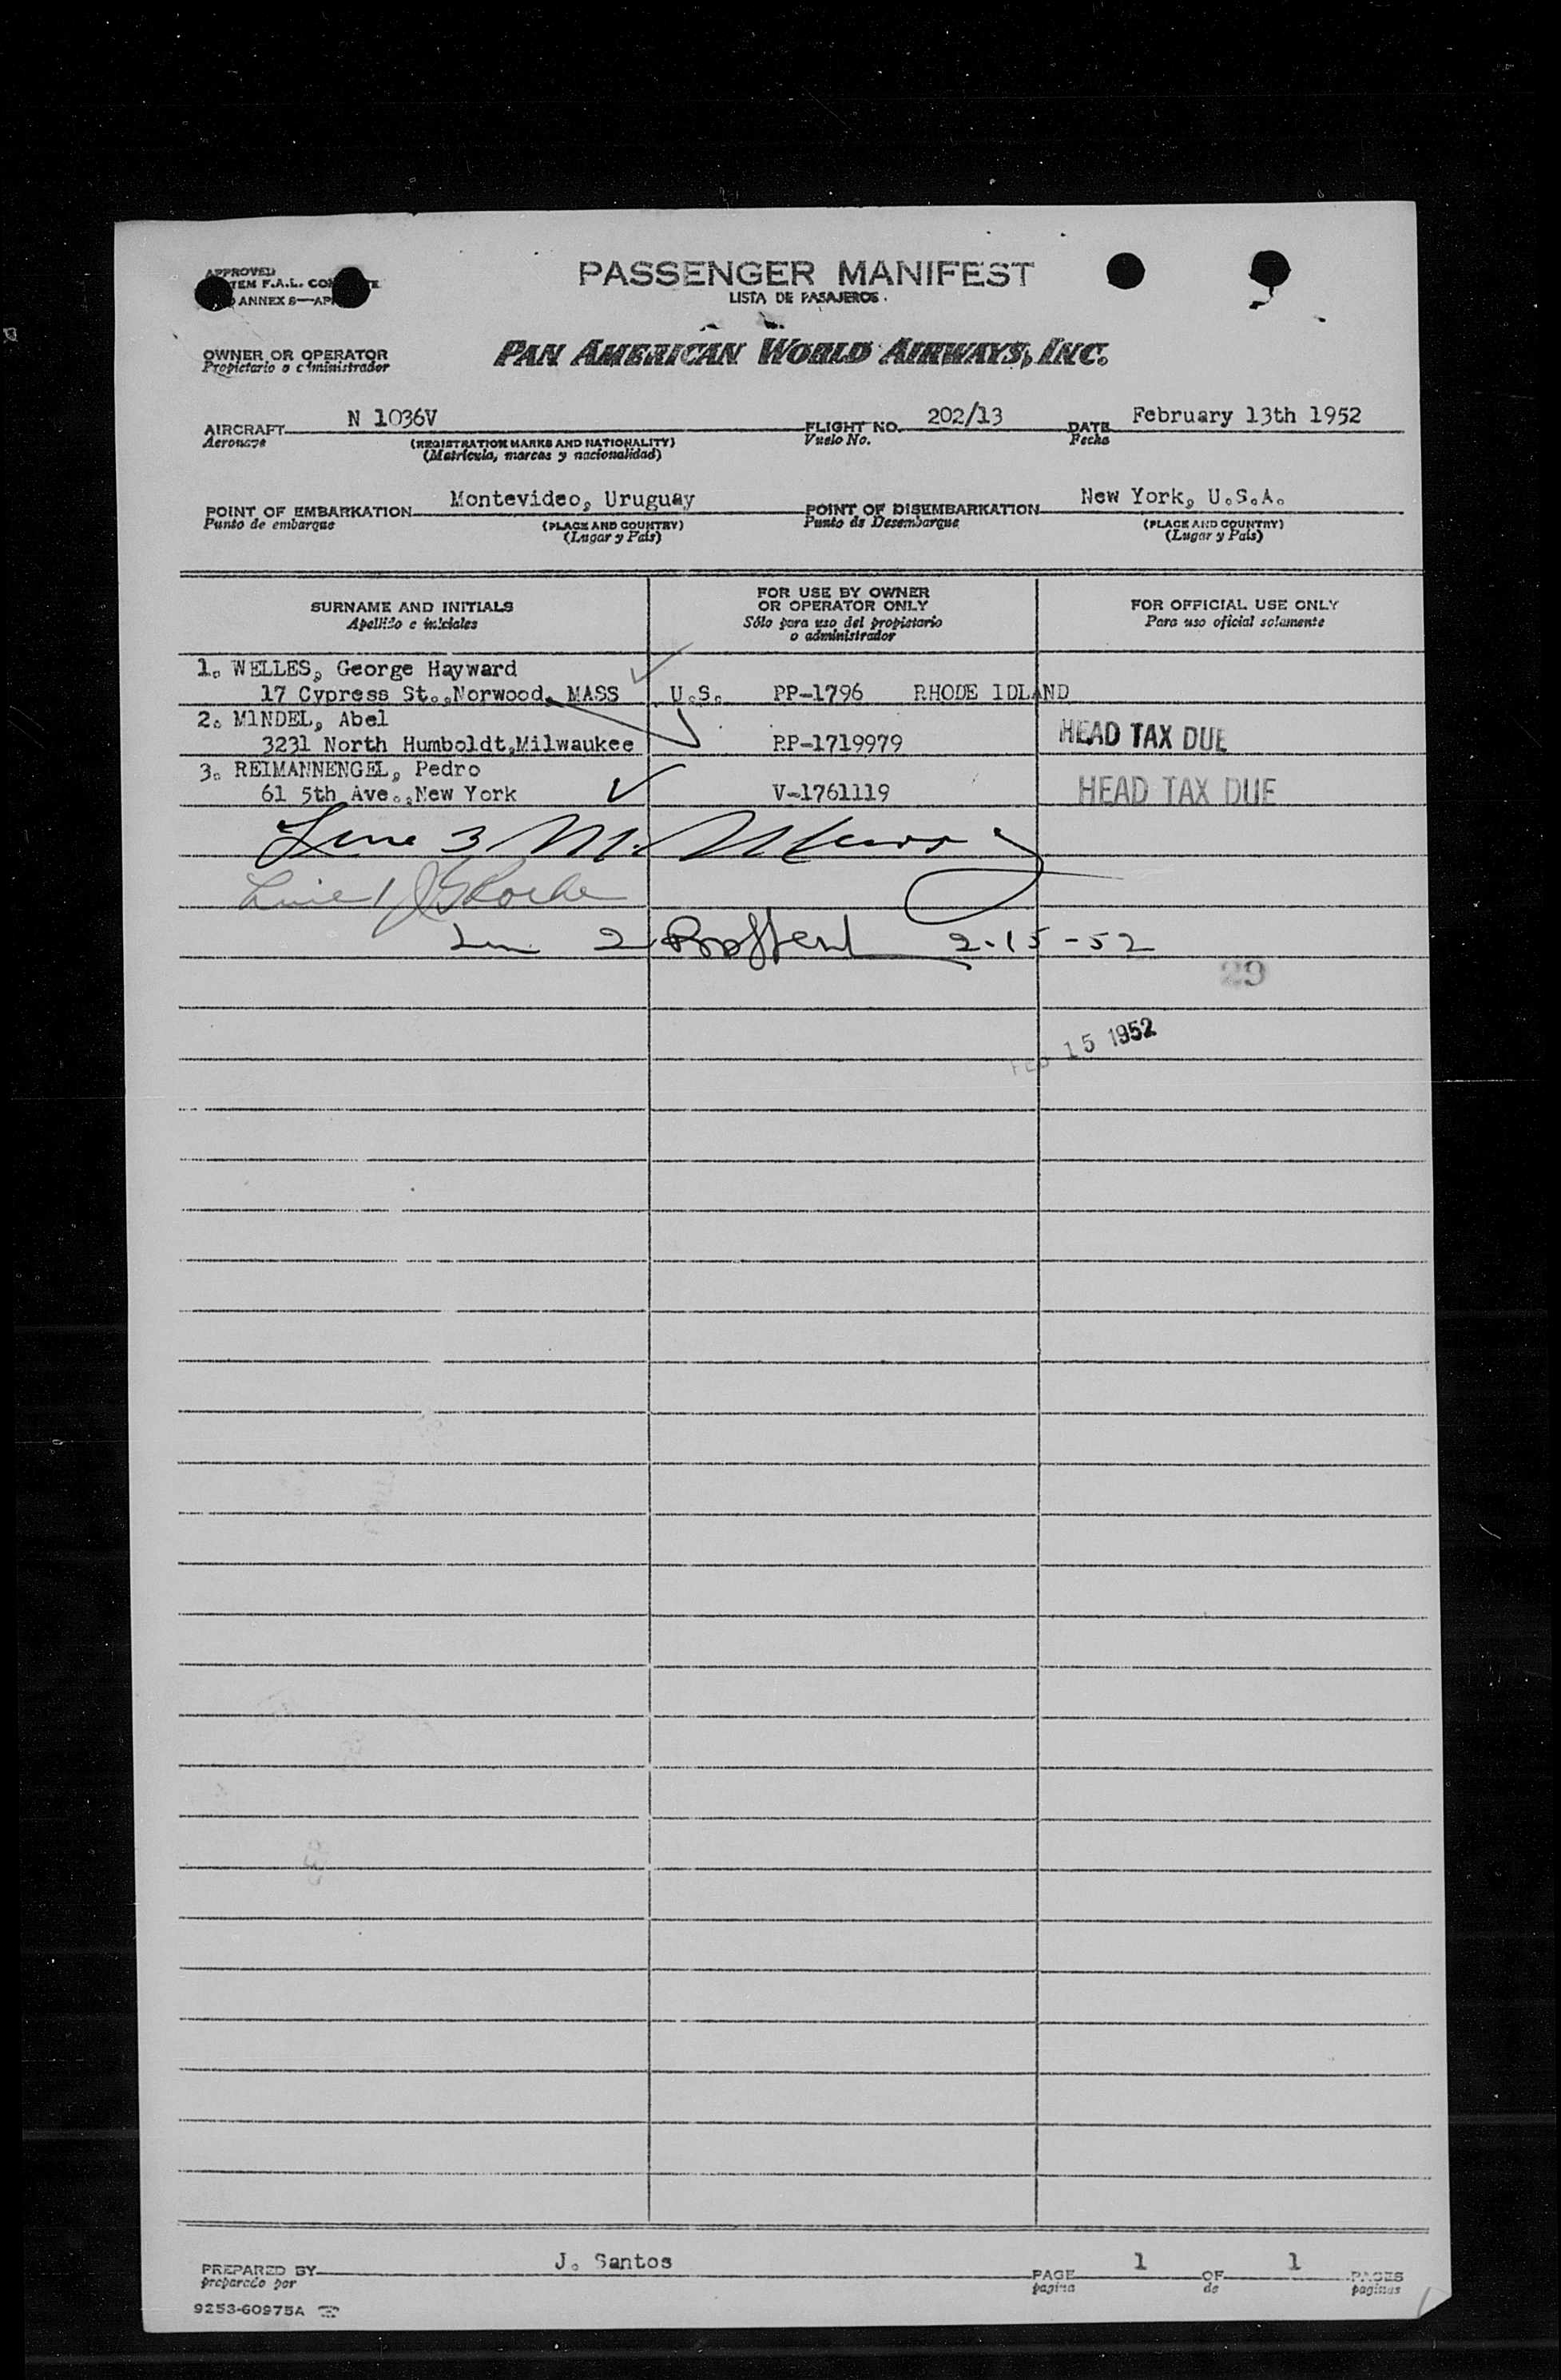 PASSENGER MANIFEST
LISTA DE PASAJEROS.
APPROVED
ANNEX 8—
OWNER OR OPERATOR
Propietario o administrador
PAN AMERICAN WORLD AIRWAYS, INC.
AIRCRAFT N 1036V FLIGHT NO. 202/13 DATE February 13th 1952
Aeronave (REGISTRATION MARKS AND NATIONALITY) Vuelo No. Fecha
(Matricula, marcas y nacionalidad)
POINT OF EMBARKATION Montevideo, Uruguay POINT OF DISEMBARKATION New York, U.S.A.
Punto de embarque (PLACE AND COUNTRY) Punto de Desembarque (PLACE AND COUNTRY)
(Lugar y País) (Lugar y País)
SURNAME AND INITIALS
Apellido e iniciales
FOR USE BY OWNER
OR OPERATOR ONLY
Sólo para uso del propietario
o administrador
FOR OFFICIAL USE ONLY
Para uso oficial solamente
1. WELLES, George Hayward
17 Cypress St.,Norwood, MASS U.S. PP-1796 RHODE IDLAND
2. MINDEL, Abel
3231 North Humboldt,Milwaukee PP-1719979 HEAD TAX DUE
3. REIMANNENGEL, Pedro
61 5th Ave.,New York V-1761119 HEAD TAX DUE
Line 3 M.
Line 1
2 2-15-52
29
FEB 15 1952
PREPARED BY J. Santos PAGE 1 OF 1 PAGES
preparado por pagina de paginas
9253-60975A